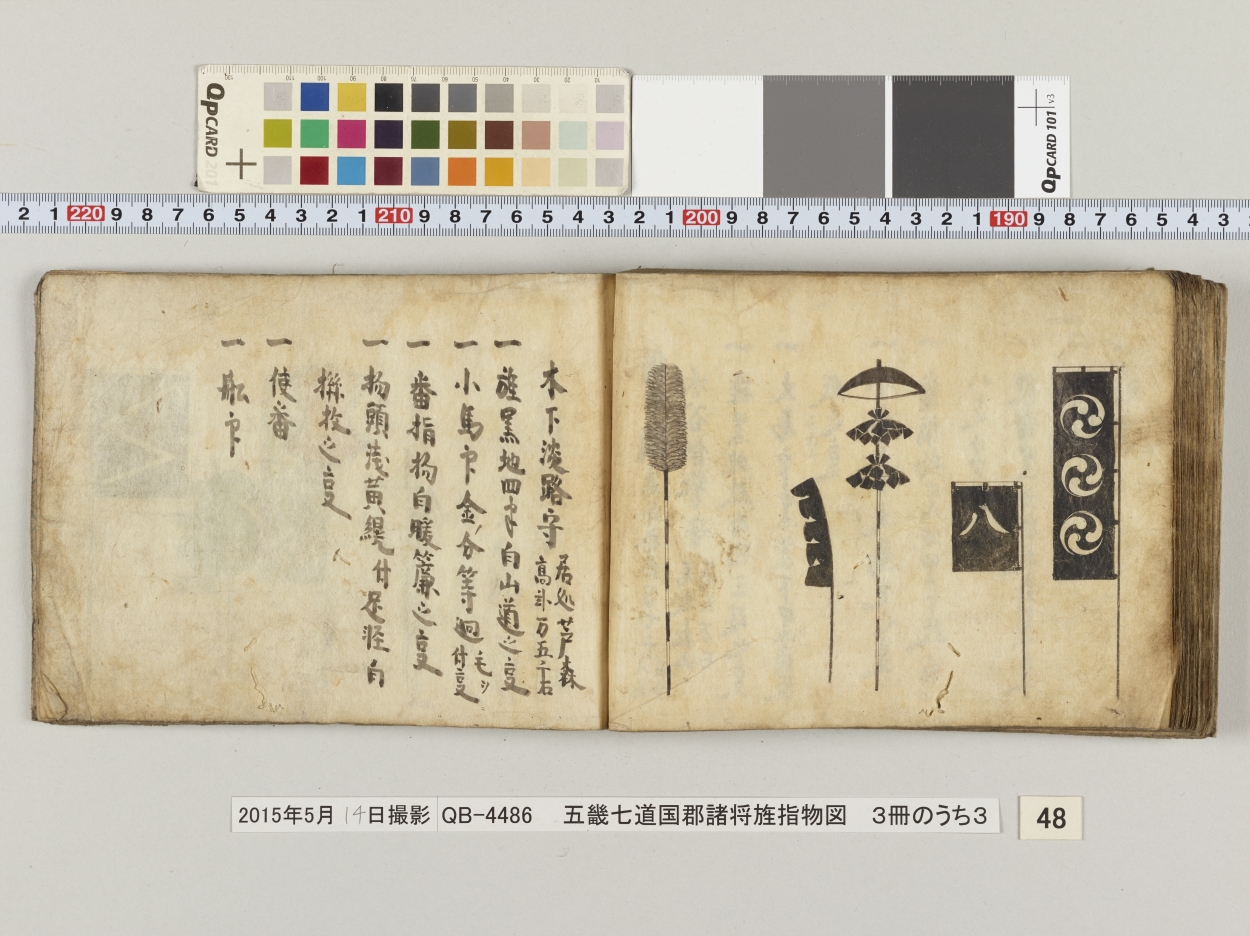 QPCARD 201
QPCARD 101 v3
2 1 220 9 8 7 6 5 4 3 2 1 210 9 8 7 6 5 4 3 2 1 200 9 8 7 6 5 4 3 2 1 190 9 8 7 6 5 4 3
八
木下淡路守
居処芦森
高弐万五千石
一 旌黒地四半白山道之㕝
一 小馬印金ノ分等廻毛シ付㕝
一 番指物白暖簾之㕝
一 物頭浅黄 付足軽白
之㕝
一 使番
一 船印
2015年5月14日撮影 QB-4486 五畿七道国郡諸将旌指物図 3冊のうち3
48